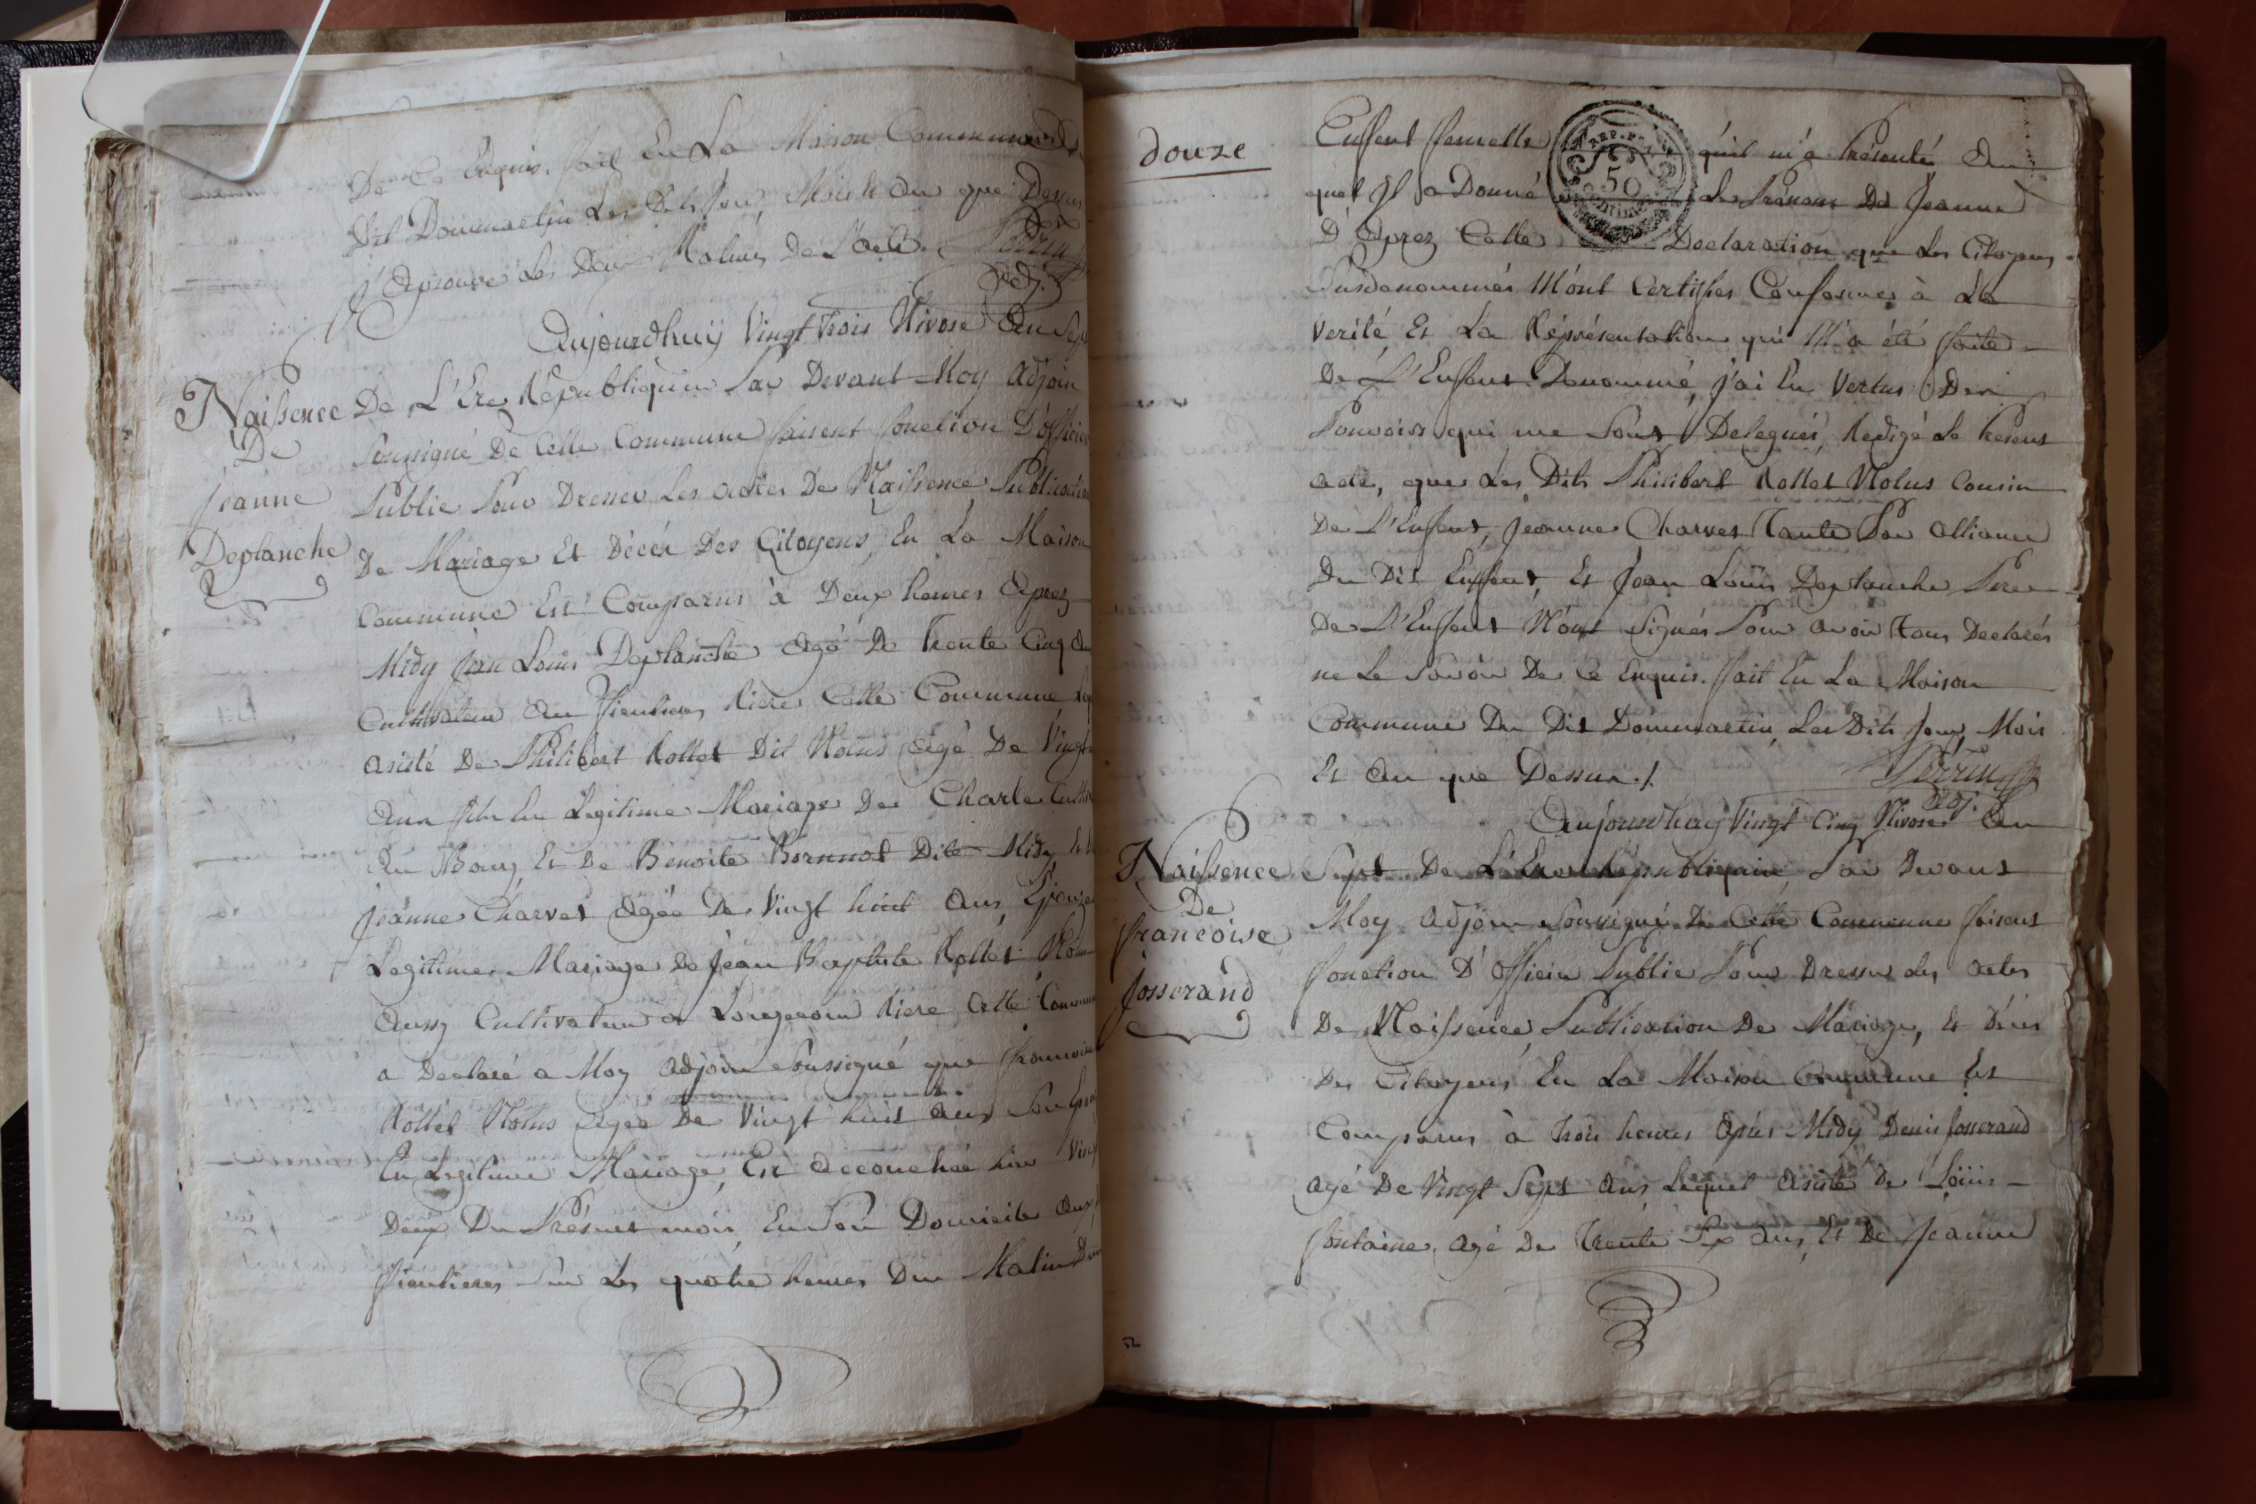 De Ce Enquis. fait En La Maison Commune du
Dit Dommartin Les Dits Jour, Mois et an que Dessus
J'aprouve Les Deux Rolus De L'acte. Perrin
adj.
Aujourdhuy Vingt trois Nivose an Sept
Naissence
De
jeanne
Deplanche
De L'Ere Republiquine Par Devant Moy adjoin
Soussigné De Cette Commune faisent fonction D'officier
Public Pour Dresser Les actes De Naissence, Publication
De Mariage Et Décés Des Citoyens, En La Maison
Commune Est Comparus à Deux heures Aprez
Midy Jean Louis Deplanche agé De trente Cinq an
Cultivateur au Rière Cette Commune
asisté De Philibert Rollet Dit Nolus agé De Vingt
ans fils En Legitime Mariage De Charle
Du Bourg Et De Benoite Dite Midy
Jeanne Charvet agée De Vingt huit ans, Epouze
Legitime Mariage De Jean Baptiste Rollet
aussy Cultivateur a Rière Cette Commune
a Declaré a Moy adjoin Soussigné que
Rollet Nolus agée De Vingt huit ans Son
En Legitime Mariage, Est accouchée hier Vingt
Deux Du Présent mois, En Son Domicile aux
Sur Les quatre heures Du Matin D'un
douze
Enffent ffemelle qu'il m'a Présenté au
REP. FRA.
50
CENTIMES
quel Il a Donné Les Prénoms De Jeanne
D'Aprez Cette Declaration que Les Citoyens
Susdenommés M'ont Certiffies Conformes à La
Verité Et La Réprésentation qui M'a été faite
De L'Enffent Denommé, J'ai En Vertus Des
Pouvoirs qui me Sont Delegués, Redigé Le Present
acte, que Les Dits Philibert Rollet Nolus Cousin
De L'Enffent, Jeanne Charvet Tante Par alliance
Du Dit Enffent, Et Jean Louis Deplanche Pere
De L'Enffent N'ont Signés Pour avoir Tous Declarés
ne Le Savoir De Ce Enquis. fait En La Maison
Commune Du Dit Dommartin, Les Dits Jour, Mois
Et an que Dessus./. Perrin
adj.
Aujourdhuy Vingt Cinq Nivose an
Naissence
De
francoise
Josserand
Sept De L'Ere Républiquine, Par Devant
Moy adjoin Soussigné De Cette Commune faisent
fonction D'officier Public Pour Dresser Les actes
De Naissence, Publication De Mariage, Et Décés
Des Citoyens En La Maison Commune Est
Comparus à trois heures Aprés Midy Denis Josserand
agé De Vingt Sept ans Lequel Asisté De Louis
fontaine agé De Trente Six ans, Et De Jeanne